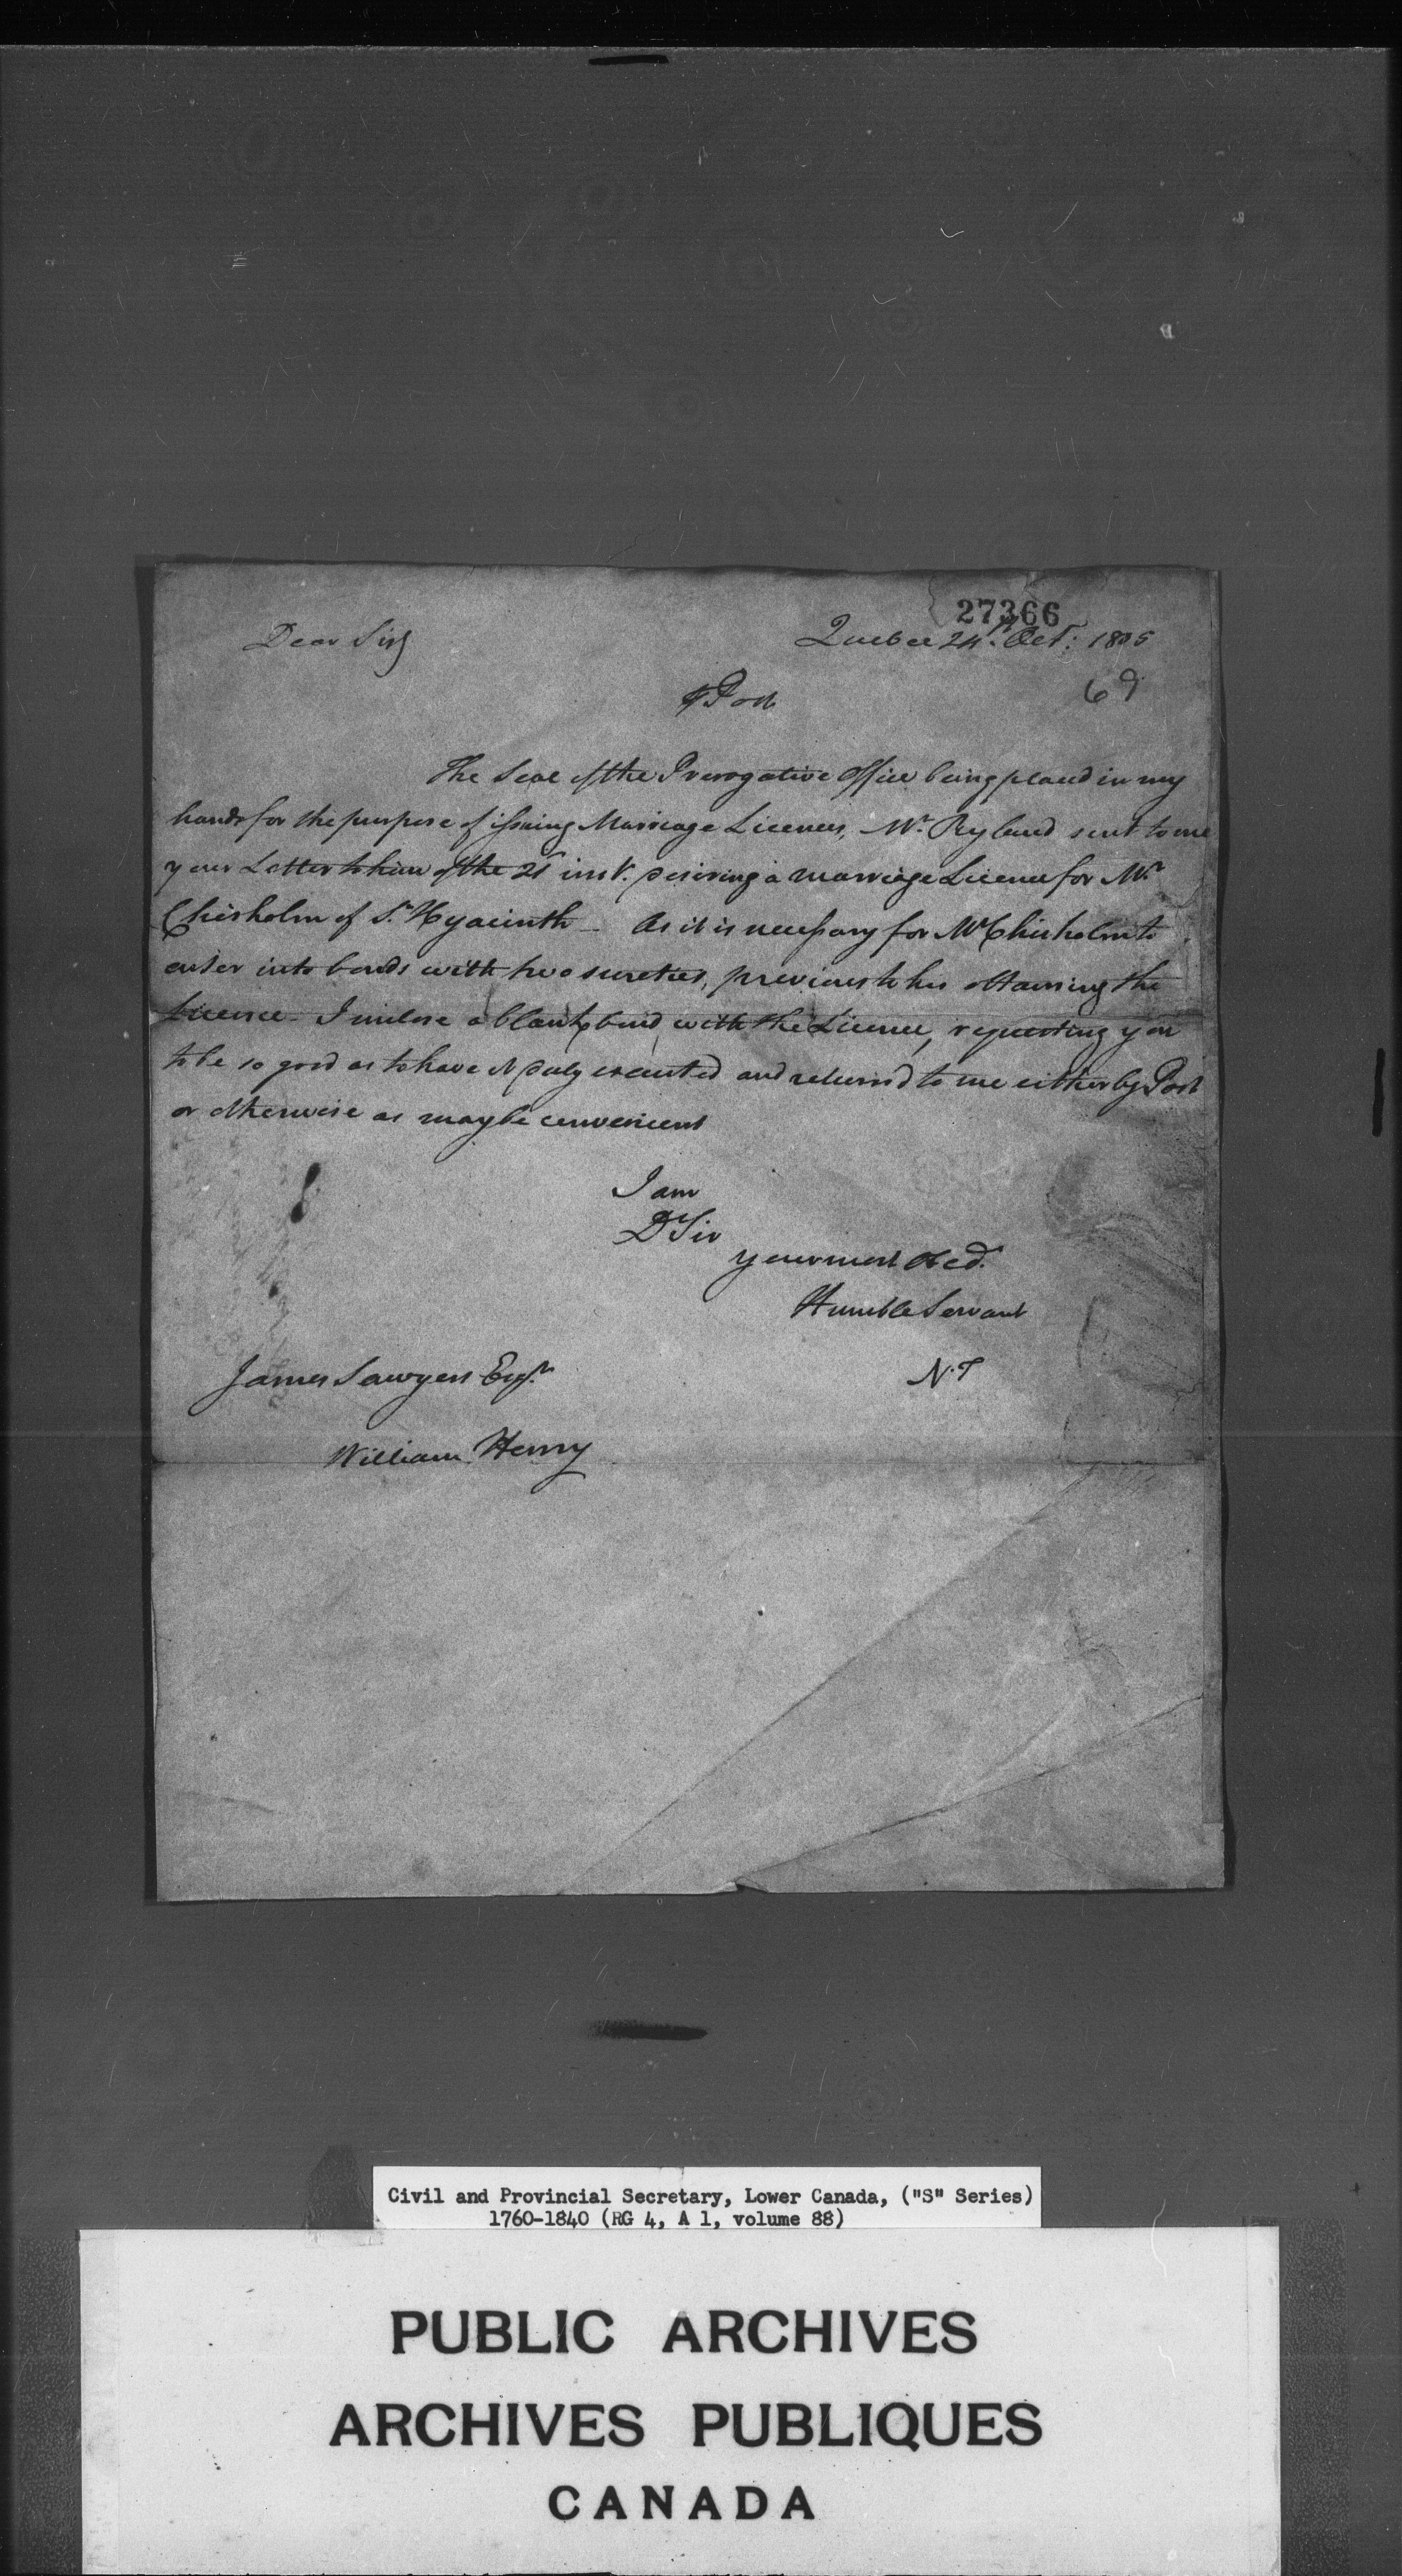 27366
Dear Sir
Quebec 24th. Oct: 1805
69
⅌ Post
The Seal of the Prerogative Office being placed in my
hands for the purpose of issuing Marriage Licences, Mr. Ryland sent to me
your Letter to him of the 21 inst. desiring a marriage Licence for Mr.
Chisholm of St. Hyacinth — As it is necessary for Mr Chisholm to
enter into bonds with two sureties, previous to his obtaining the
Licence - I inclose a blank bond with the Licence, requesting you
to be so good as to have it duly executed and returned to me either by Post
or otherwise as may be convenient
I am
Dr Sir
your most Obed.
Humble Servant
N.T
James Sawyers Esqr.
William Henry
Civil and Provincial Secretary, Lower Canada, ("S" Series)
1760-1840 (RG 4, A 1, volume 88)
PUBLIC ARCHIVES
ARCHIVES PUBLIQUES
CANADA